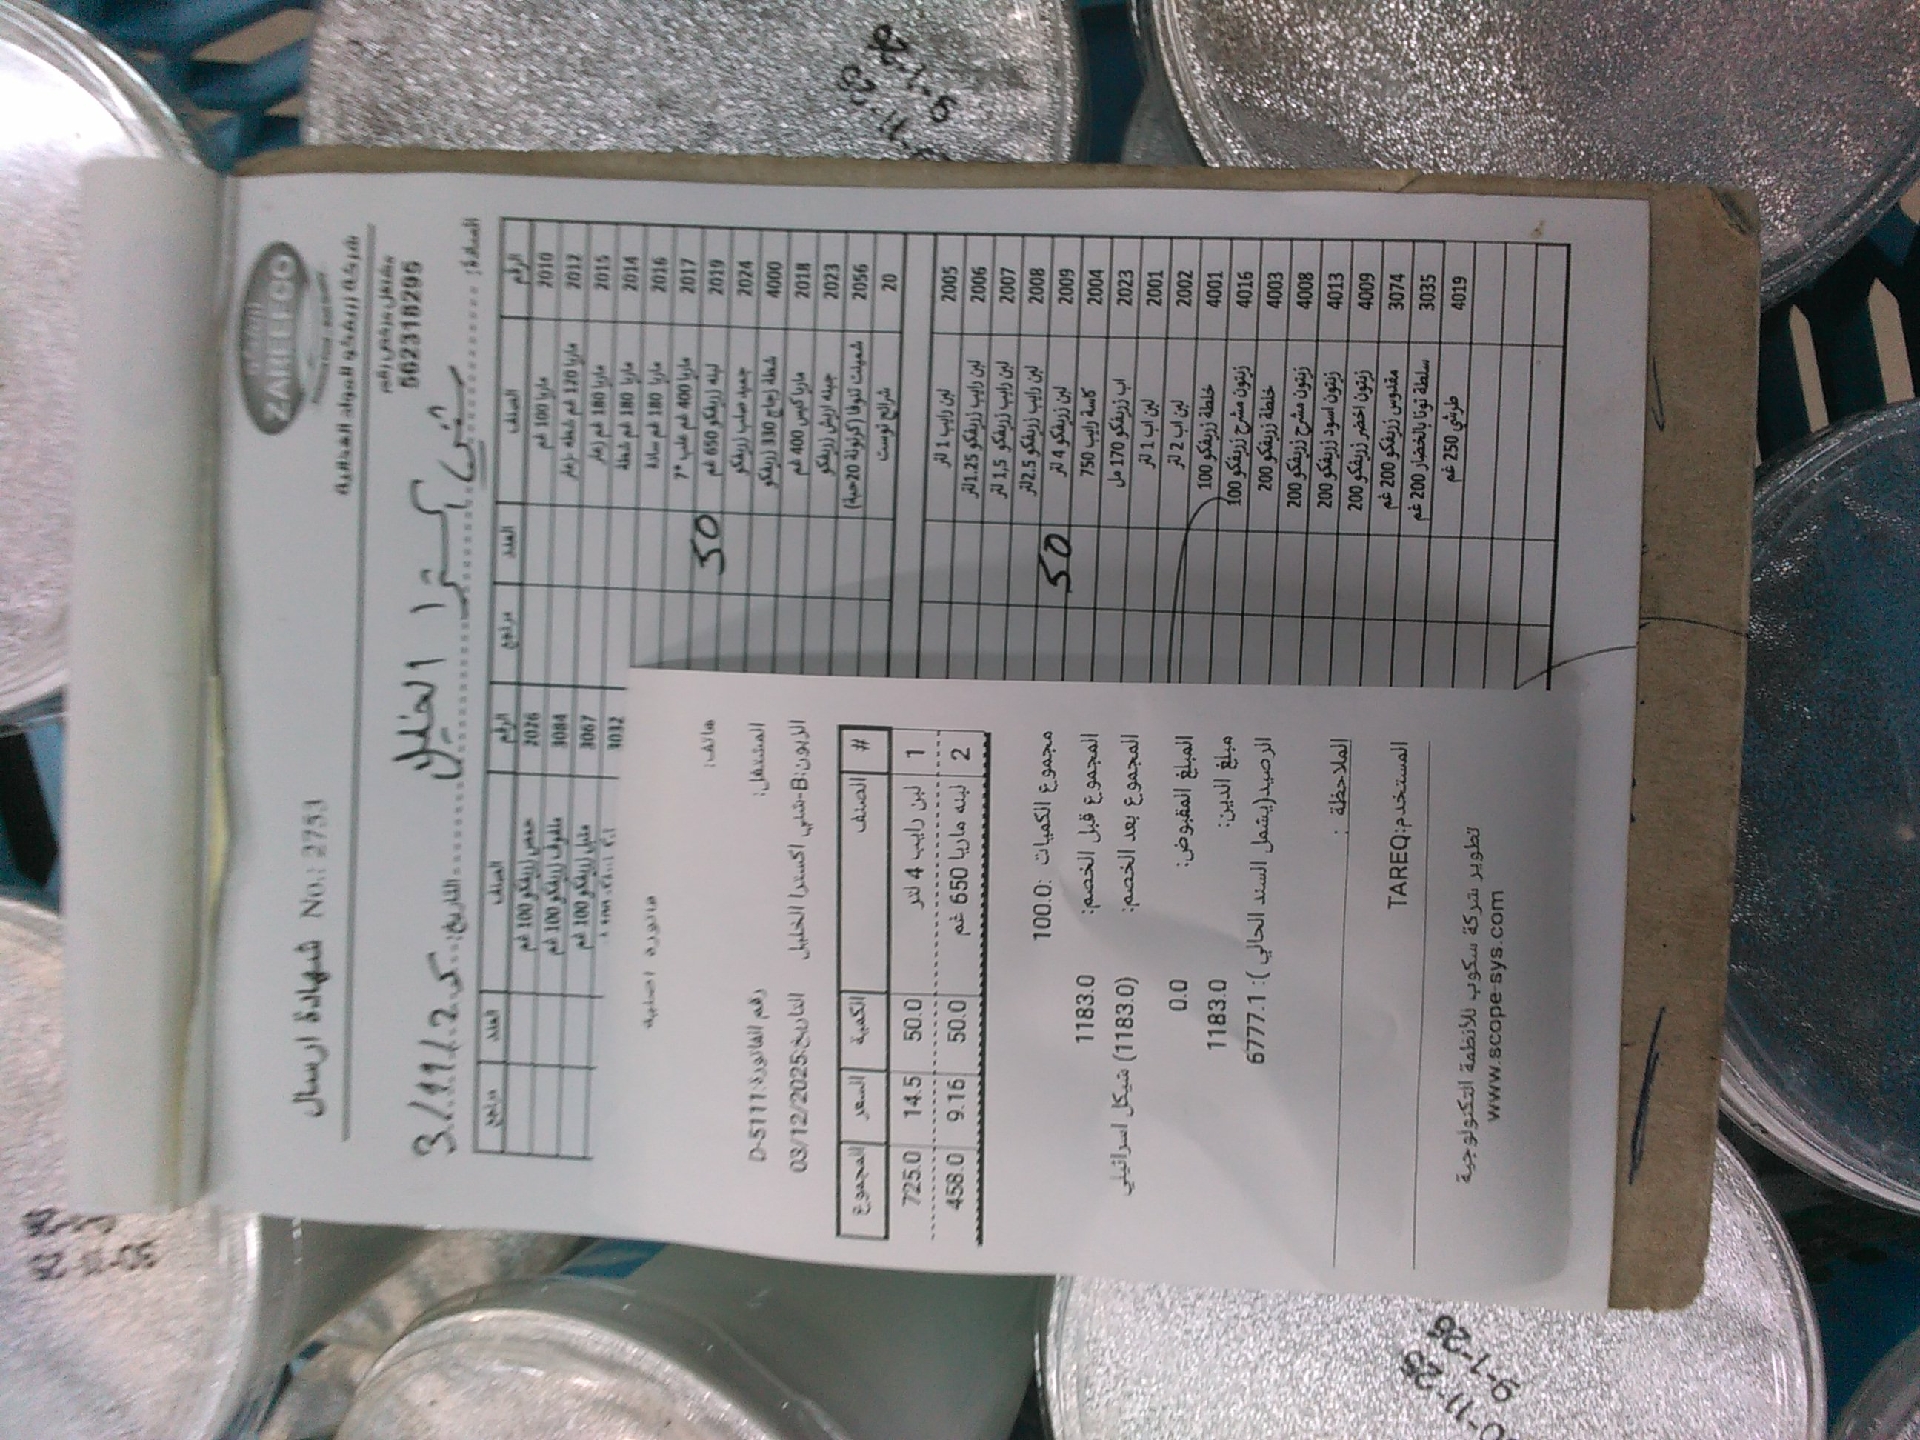 ZAREEFCO
شركة زريفكو للمواد الغذائية
مشتغل مرخص رقم
562318295
شهادة ارسال No.: 2753
السادة:
شني اكسترا الخليل
التاريخ:
الرقم الصنف العدد مرتجع الرقم الصنف العدد مرتجع
2010 ماريا 100 غم 2026 حمص زريفكو 100 غم
2012 ماريا 120 غم شطة زعتر 3084 ملفوف زريفكو 100 غم
2015 ماريا 180 غم زعتر 3067 متبل زريفكو 100 غم
2014 ماريا 180 غم شطة 3032
2016 ماريا 180 غم سادة
2017 ماريا 400 غم علب *7
2019 لبنه زريفكو 650 غم 50
2024 جميد صلب زريفكو
4000 شطة زجاج 330 زريفكو
2018 ماريا كيس 400 غم
2023 جبنه اريش زريفكو
2056 شمينت تنوفا (كرتونة 20حبة)
20 شرائح توست
2005 لبن رايب 1 لتر
2006 لبن رايب زريفكو 1.25لتر
2007 لبن رايب زريفكو 1,5 لتر
2008 لبن رايب زريفكو 2.5لتر
2009 لبن زريفكو 4 لتر 50
2004 كاسة رايب 750
2023 اب زريفكو 170 مل
2001 لبن اب 1 لتر
2002 لبن اب 2 لتر
4001 خلطة زريفكو 100
4016 زيتون مشرح زريفكو 100
4003 خلطة زريفكو 200
4008 زيتون مشرح زريفكو 200
4013 زيتون اسود زريفكو 200
4009 زيتون اخضر زريفكو 200
3074 مقدوس زريفكو 200 غم
3035 سلطة تونا بالخضار 200 غم
4019 طرشي 250 غم
هاتف:
فاتورة اصلية
المشتغل: رقم الفاتورة:D-5111
الزبون:B-شني اكسترا الخليل التاريخ:03/12/2025
# الصنف الكمية السعر المجموع
1 لبن رايب 4 لتر 50.0 14.5 725.0
2 لبنه ماريا 650 غم 50.0 9.16 458.0
مجموع الكميات :100.0
المجموع قبل الخصم: 1183.0
المجموع بعد الخصم: (1183.0) شيكل اسرائيلي
المبلغ المقبوض: 0.0
مبلغ الدين: 1183.0
الرصيد(يشمل السند الحالي ): 6777.1
الملاحظة :
المستخدم:TAREQ
تطوير شركة سكوب للأنظمة التكنولوجية
www.scope-sys.com
9-1-26
9-1-26